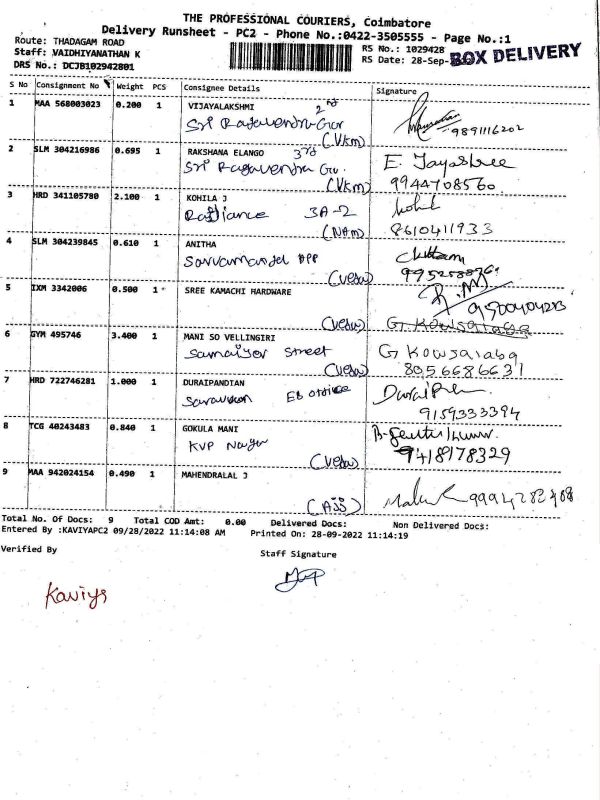 THE PROFESSIONAL COURIERS, Coimbatore
Delivery Runsheet - PC2 - Phone No.:0422-3505555 - Page No.:1
Route: THADAGAM ROAD
RS No.: 1029428
Staff: VAIDHIYANATHAN K
RS Date: 28-Sep-
BOX DELIVERY
DRS No.: DCJB102942801
S No Consignment No Weight PCS Consignee Details Signature
1 MAA 568003023 0.200 1 VIJAYALAKSHMI 2nd
9891116202
(VKm)
2 SLM 304216986 0.695 1 RAKSHANA ELANGO 3rd
E. Jayashree
(VKm) 9944708560
3 HRD 341105780 2.100 1 KOHILA J
3A-2
(NAm) 8610411933
4 SLM 304239845 0.610 1 ANITHA
5 IXM 3342006 0.500 1 SREE KAMACHI HARDWARE
6 GYM 495746 3.400 1 MANI SO VELLINGIRI
Street
8056686631
7 HRD 722746281 1.000 1 DURAIPANDIAN
EB office
9159333394
8 TCG 40243483 0.840 1 GOKULA MANI
KVP Nagar
9418178329
9 MAA 942024154 0.490 1 MAHENDRALAL J
Total No. Of Docs: 9 Total COD Amt: 0.00 Delivered Docs: Non Delivered Docs:
Entered By :KAVIYAPC2 09/28/2022 11:14:08 AM Printed On: 28-09-2022 11:14:19
Verified By
Staff Signature
Kaviys